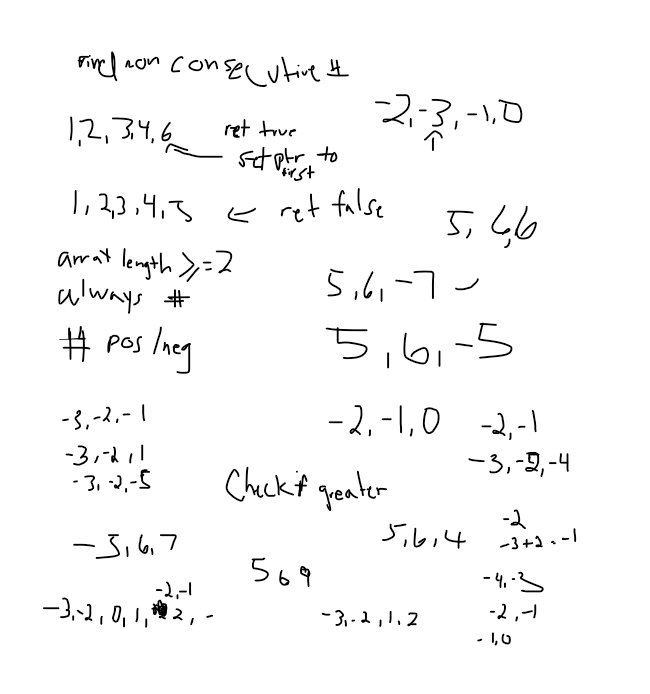 find non consecutive #
-2,-3,-1,0
↑
1,2,3,4,6 ret true
set ptr to
first
1,2,3,4,5 ← ret false
5,6,6
arrat length >,=2
5,6,-7
always #
# pos/neg
5,6,-5
-3,-2,-1
-2,-1,0
-2,-1
-3,-2,1
-3,-2,-4
-3,-2,-5
Check if greater
-3,6,7
5,6,4
-2
-3+2=-1
5 6 9
-4,-3
-2,-1
-3,-2,0,1, 2,-
-3,-2,1,2
-2,-1
-1,0